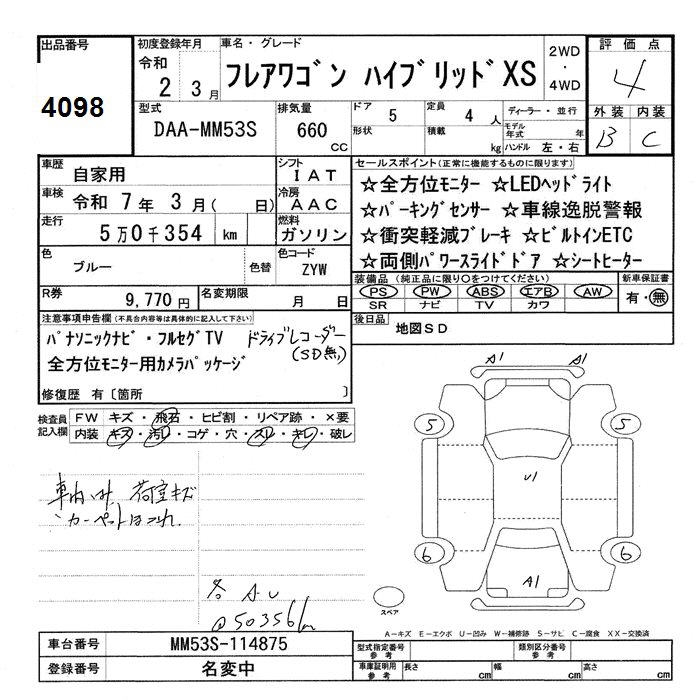 出品番号
4098
初度登録年月
令和
2 3月
車名・グレード
フレアワゴン ハイブリッド XS
2WD
・
4WD
評価点
4
型式
DAA-MM53S
排気量
660
cc
ドア 5
形状
定員 4 人
積載 kg
ディーラー・並行
モデル年式 年
ハンドル 左・右
外装 内装
B C
車歴 自家用
シフト IAT
車検 令和 7年 3月( 日)
冷房 AAC
走行 5万0千354 km
燃料 ガソリン
色 ブルー 色替
色コード ZYW
R券 9,770円
名変期限 月 日
セールスポイント(正常に機能するものに限ります)
☆全方位モニター ☆LEDヘッドライト
☆パーキングセンサー ☆車線逸脱警報
☆衝突軽減ブレーキ ☆ビルトインETC
☆両側パワースライドドア ☆シートヒーター
装備品 (純正品に限り○をつけてください)
PS PW ABS エアB AW
SR ナビ TV カワ
新車保証書
有・無
後日品 地図SD
注意事項申告欄(不具合内容等は具体的に記入して下さい)
パナソニックナビ・フルセグTV ドライブレコーダー
(SD無)
全方位モニター用カメラパッケージ
修復歴 有〔箇所 〕
検査員
記入欄
FW キズ・飛石・ヒビ割・リペア跡・×要
内装 キズ・汚レ・コゲ・穴・スレ・キレ・破レ
荷室キズ
各 AU
@50356km
A1 A1
5 5
U1
6 6
A1
スペア
A-キズ E-エクボ U-凹み W-補修跡 S-サビ C-腐食 XX-交換済
車台番号 MM53S-114875
登録番号 名変中
型式指定番号
参考
類別区分番号
参考
車庫証明用
参考
長さ cm 幅 cm 高さ cm